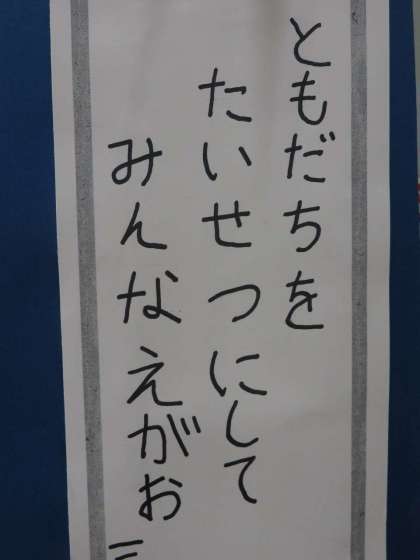 ともだちを
たいせつにして
みんなえがお